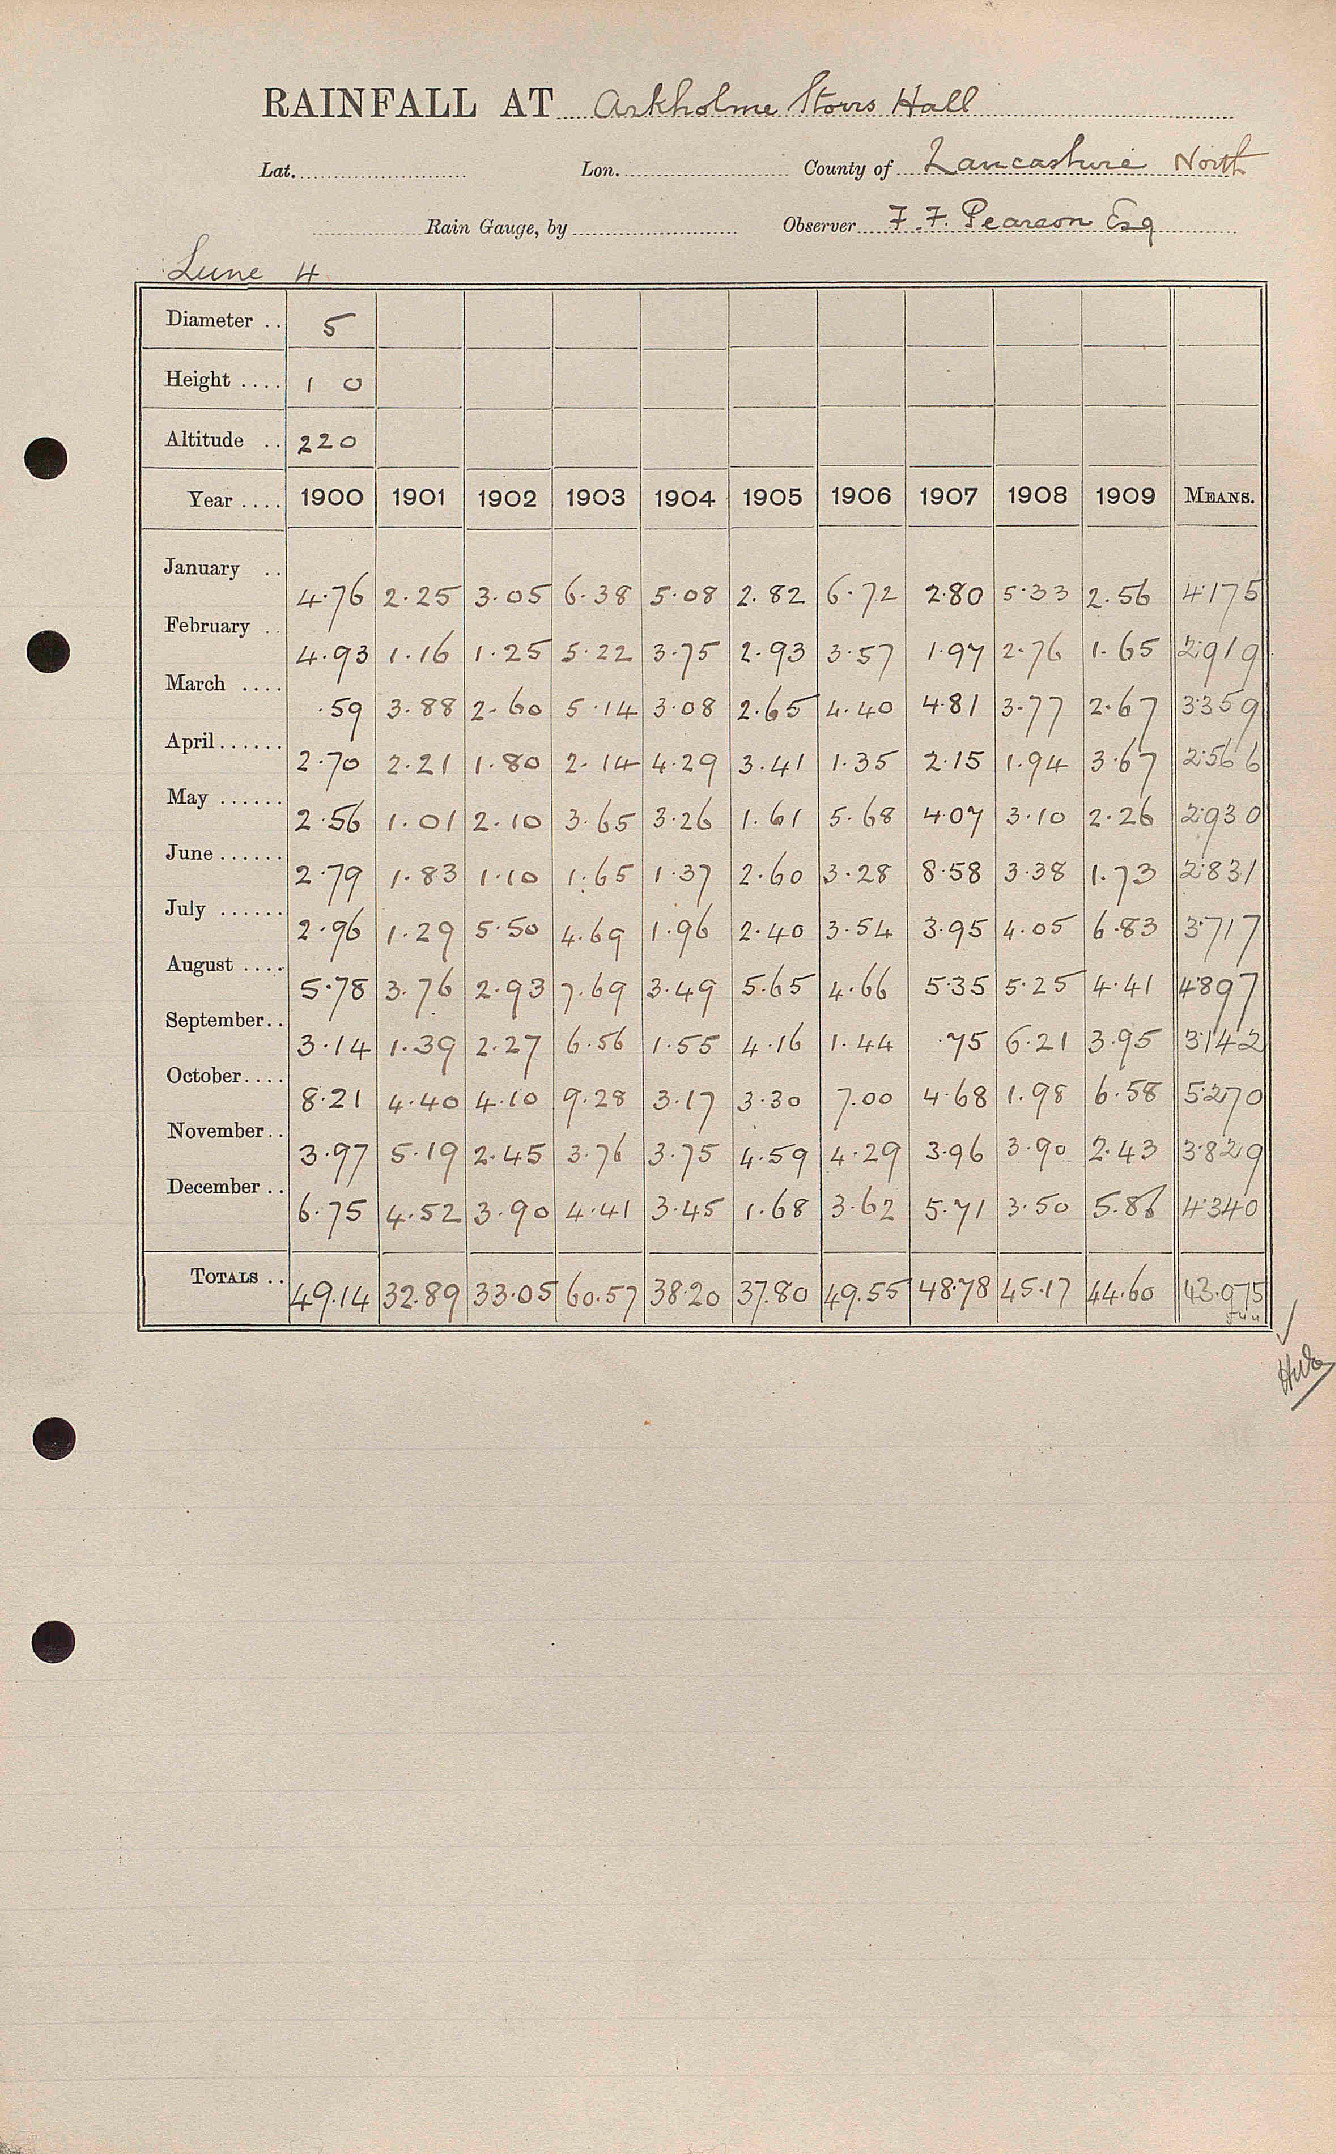 RAINFALL AT Arkholme Storrs Hall
Lat. Lon. County of Lancashire North
Rain Gauge, by Observer F. F. Pearson Esq
Lune 4
Diameter .. 5
Height .... 1 0
Altitude .. 220
Year .... 1900 1901 1902 1903 1904 1905 1906 1907 1908 1909 MEANS.
January .. 4.76 2.25 3.05 6.38 5.08 2.82 6.72 2.80 5.33 2.56 4.175
February .. 4.93 1.16 1.25 5.22 3.75 2.93 3.57 1.97 2.76 1.65 2.919
March .... .59 3.88 2.60 5.14 3.08 2.65 4.40 4.81 3.77 2.67 3.359
April ...... 2.70 2.21 1.80 2.14 4.29 3.41 1.35 2.15 1.94 3.67 2.566
May ...... 2.56 1.01 2.10 3.65 3.26 1.61 5.68 4.07 3.10 2.26 2.930
June ...... 2.79 1.83 1.10 1.65 1.37 2.60 3.28 8.58 3.38 1.73 2.831
July ...... 2.96 1.29 5.50 4.69 1.96 2.40 3.54 3.95 4.05 6.83 3.717
August .... 5.78 3.76 2.93 7.69 3.49 5.65 4.66 5.35 5.25 4.41 4.897
September .. 3.14 1.39 2.27 6.56 1.55 4.16 1.44 .75 6.21 3.95 3.142
October .... 8.21 4.40 4.10 9.28 3.17 3.30 7.00 4.68 1.98 6.58 5.270
November .. 3.97 5.19 2.45 3.76 3.75 4.59 4.29 3.96 3.90 2.43 3.829
December .. 6.75 4.52 3.90 4.41 3.45 1.68 3.62 5.71 3.50 5.86 4.340
TOTALS .. 49.14 32.89 33.05 60.57 38.20 37.80 49.55 48.78 45.17 44.60 43.975